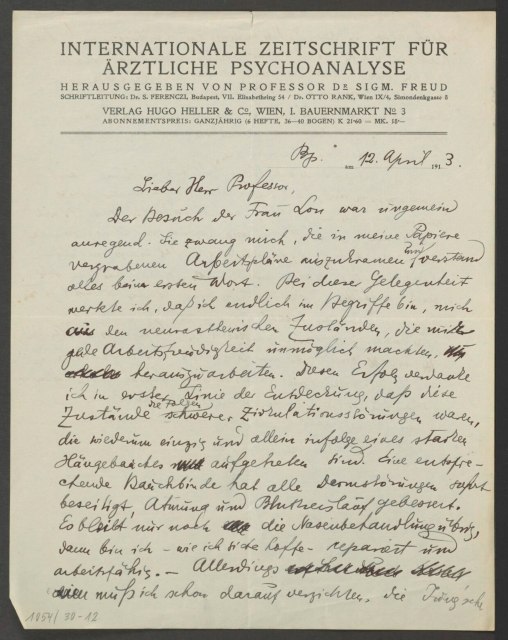 INTERNATIONALE ZEITSCHRIFT FÜR
ÄRZTLICHE PSYCHOANALYSE
HERAUSGEGEBEN VON PROFESSOR DR SIGM. FREUD
SCHRIFTLEITUNG: Dr. S. FERENCZI, Budapest, VII. Elisabethring 54 / Dr. OTTO RANK, Wien IX/4, Simondenkgasse 8
VERLAG HUGO HELLER & Co, WIEN, I. BAUERNMARKT No 3
ABONNEMENTSPREIS: GANZJÄHRIG (6 HEFTE, 36—40 BOGEN) K 21·60 = MK. 18·—
Bp. am 12. April 1913.
Lieber Herr Professor,
Der Besuch der Frau Lou war ungemein
anregend. Sie zwang mich, die in meine Papiere
vergrabenen Arbeitspläne auszukramen und verstand
alles beim ersten Wort. Bei dieser Gelegenheit
merkte ich, daß ich endlich im Begriffe bin, mich
aus den neurasthenischen Zuständen, die mir
jede Arbeitsfreudigkeit unmöglich machten,
herauszuarbeiten. Diesen Erfolg verdanke
ich in erster Linie der Entdeckung, daß diese
Zustände die Folgen schwerer Zirkulationsstörungen waren,
die wiederum einzig und allein infolge eines starken
Hängebauches aufgetreten sind. Eine entspre-
chende Bauchbinde hat alle Darmstörungen sofort
beseitigt, Atmung und Blutkreislauf gebessert.
Es bleibt nur noch die Nasenbehandlung übrig,
dann bin ich – wie ich hoffe – repariert und
arbeitsfähig. – Allerdings
muß ich schon darauf verzichten, die Jung'sche
1054/30-12